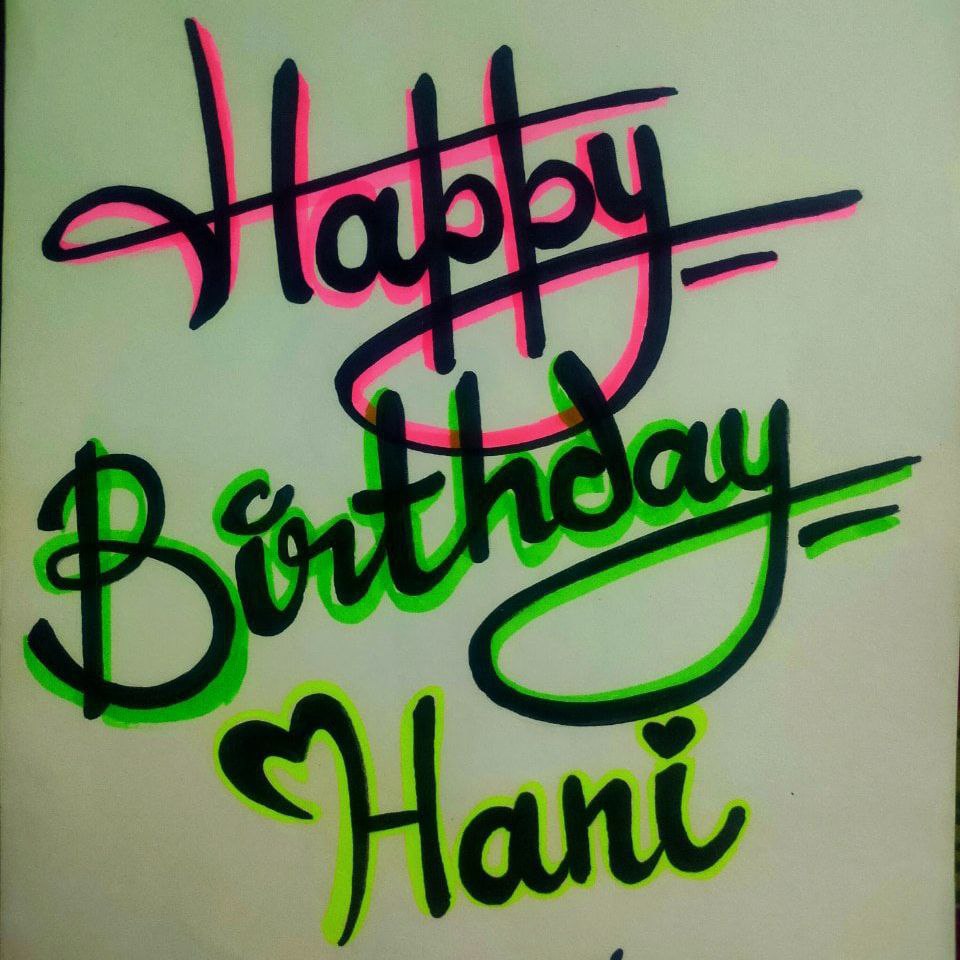 Happy
Birthday
Hani